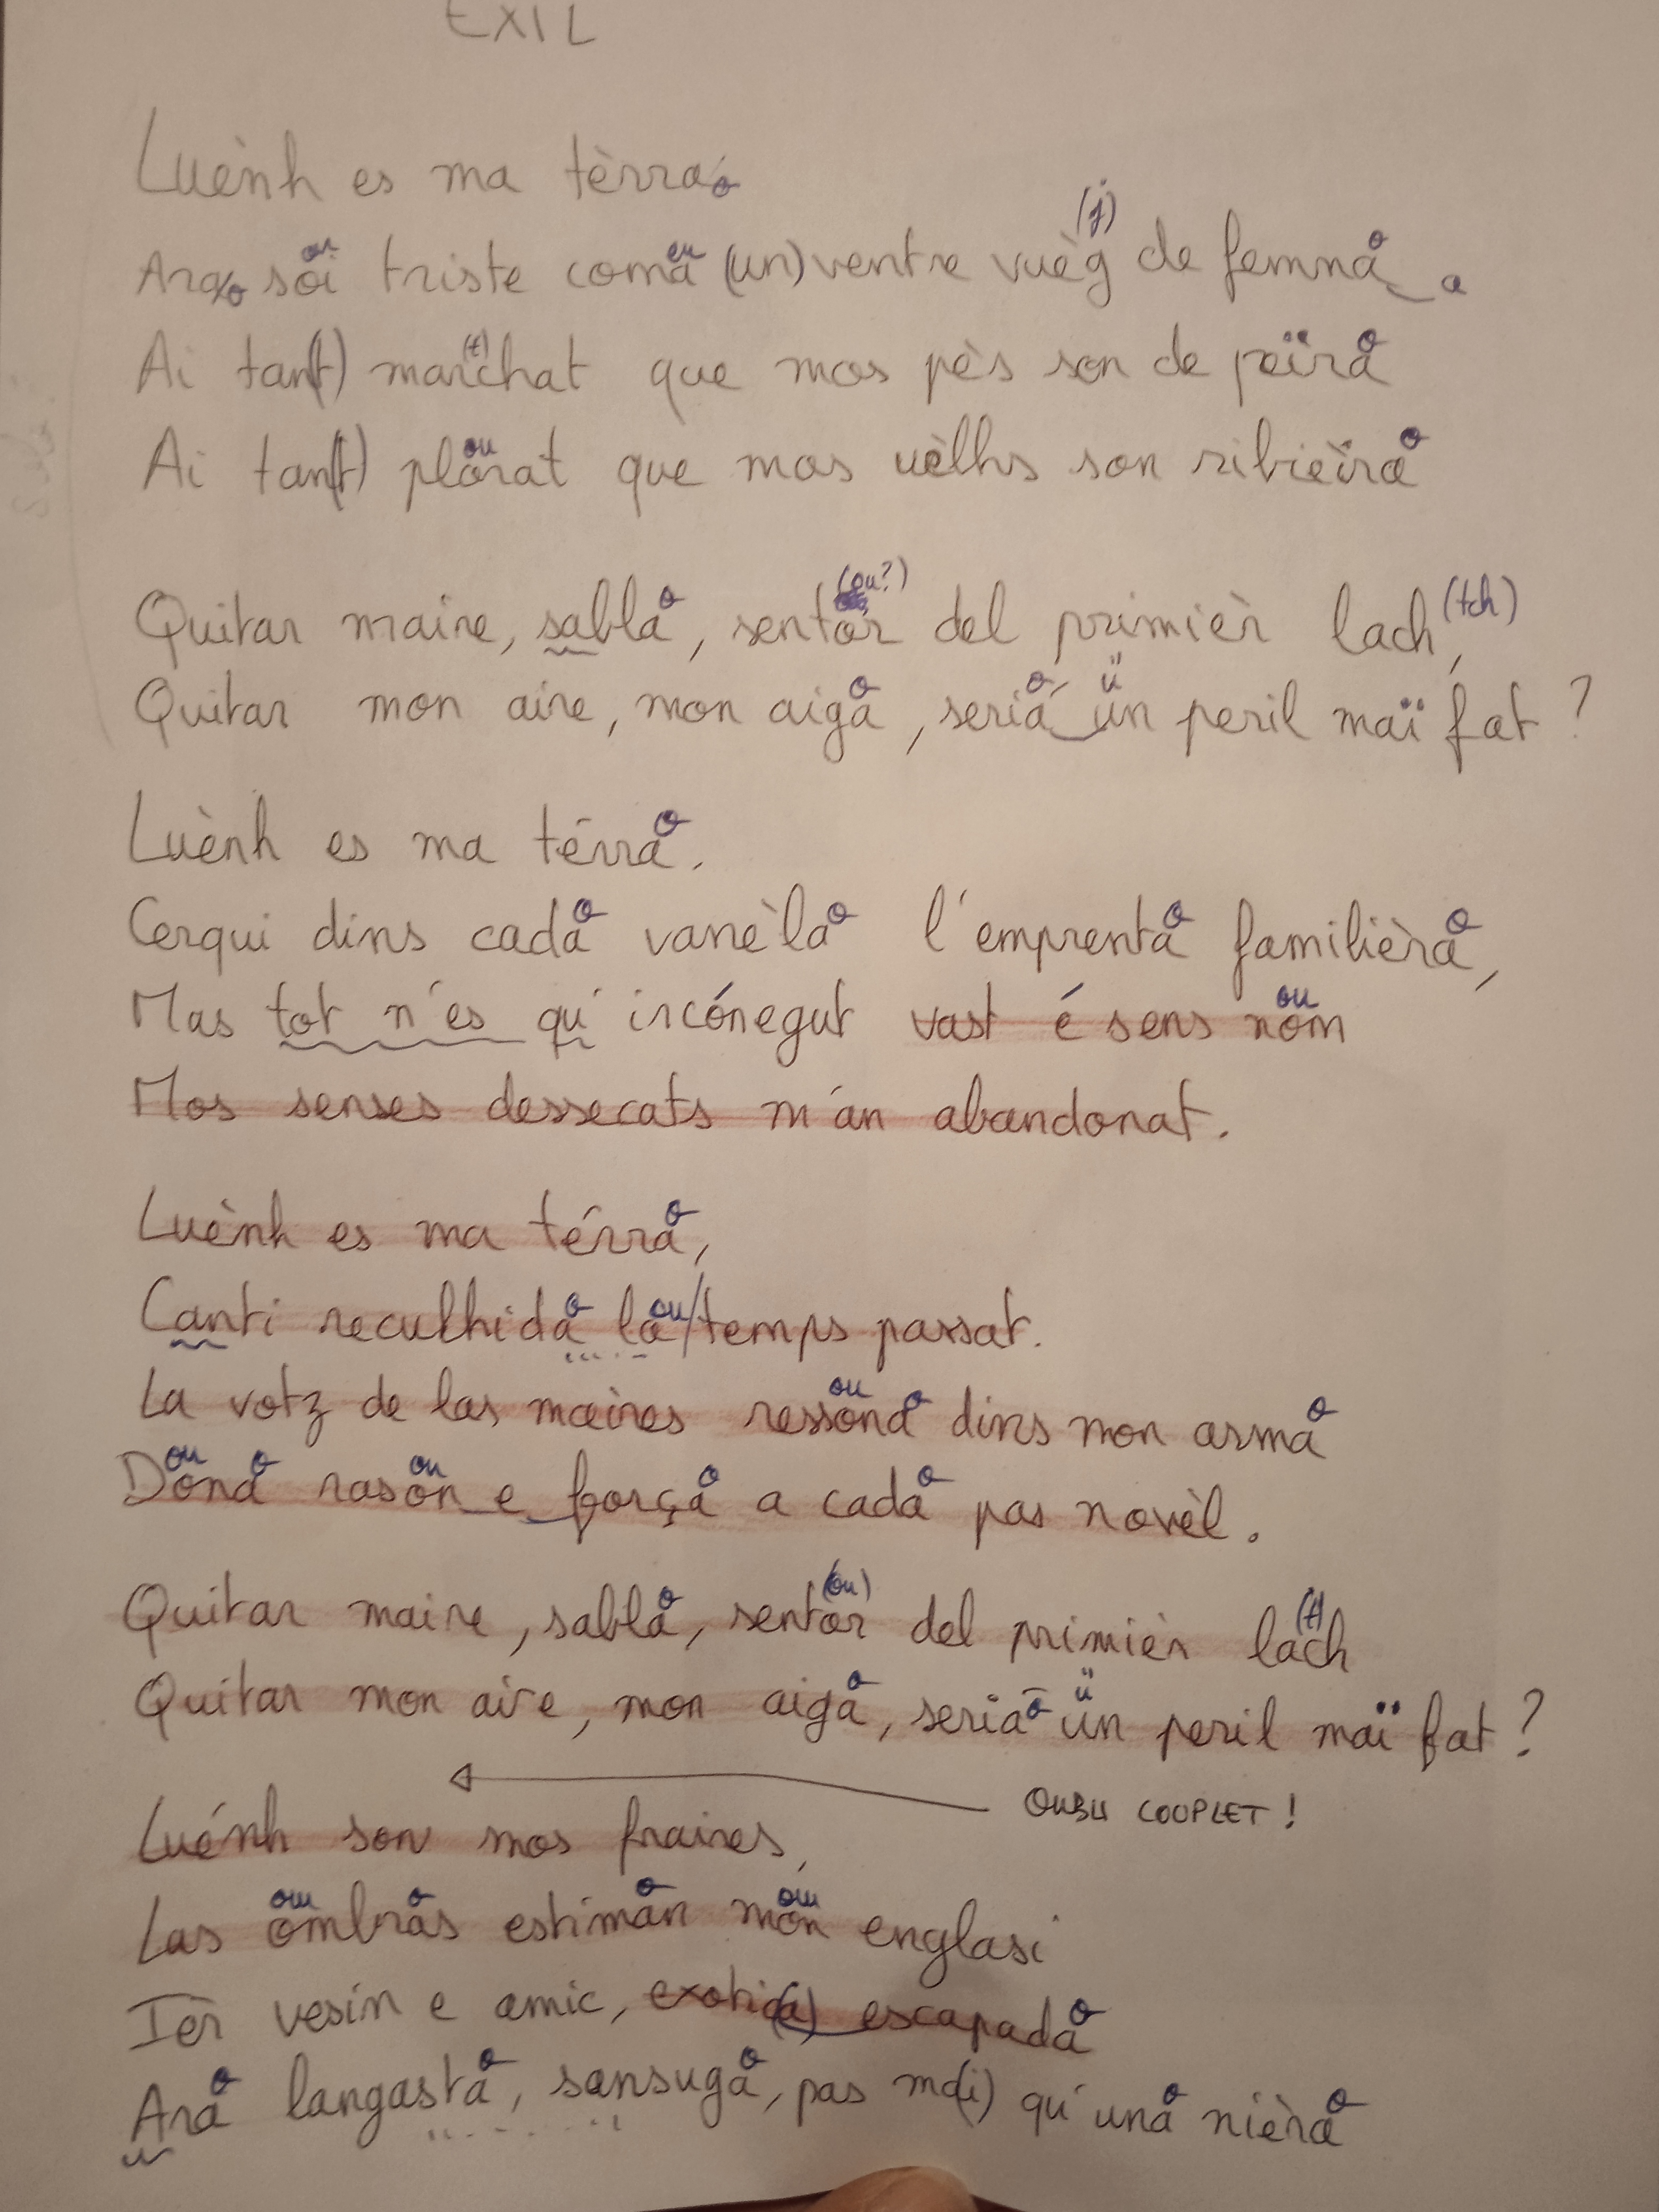 EXIL
Luènh es ma tèrra
Ara soi triste coma (un) ventre vuèg (j) de femna
Ai tan(t) marchat que mos pès son de pèïra
Ai tan(t) plorat que mos uèlhs son ribièïra
Quitar maire, sabla, sentor (ou?) del primièr lach (tch),
Quitar mon aire, mon aiga, seria ün peril maï fat ?
Luènh es ma térra.
Cerqui dins cada vanèla l'emprenta familièra,
Mas tot n'es qu'incónegut vast é sens nom
Mos senses dessecats m'an abandonat.
Luènh es ma térra,
Canti reculhida lo/temps passat.
La votz de las maires ressona dins mon arma
Dona rason e força a cada pas novèl.
Quitar maire, sabla, sentor (ou) del primièr lach (t)
Quitar mon aire, mon aiga, seria ün peril maï fat ?
OUBLI COUPLET !
Luénh son mos fraires,
Las ombras estiman mon englasi
Ièr vesin e amic, exotic(a) escapada
Ara langasta, sansuga, pas ma(i) qu'una nièra